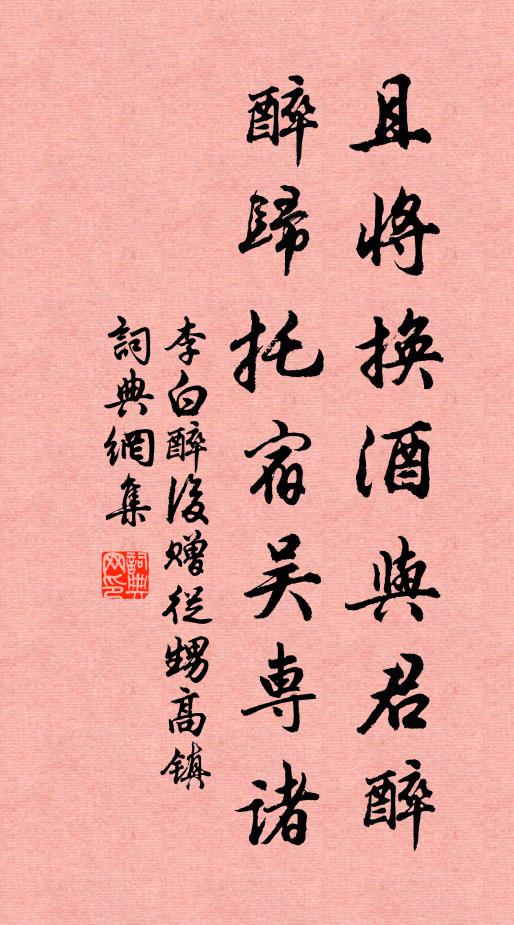 且將換酒與君醉
醉歸托宿吳專諸
李白醉後贈從甥高鎮
詞典網集
詞典
网印